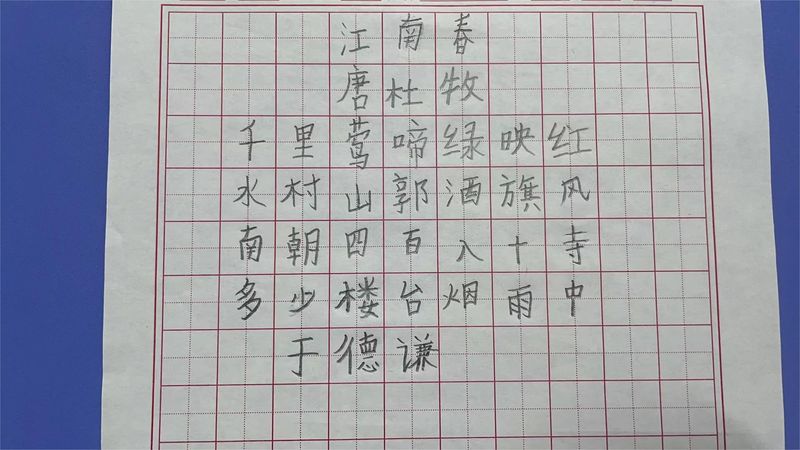 江南春
唐杜牧
千里莺啼绿映红
水村山郭酒旗风
南朝四百八十寺
多少楼台烟雨中
于德谦